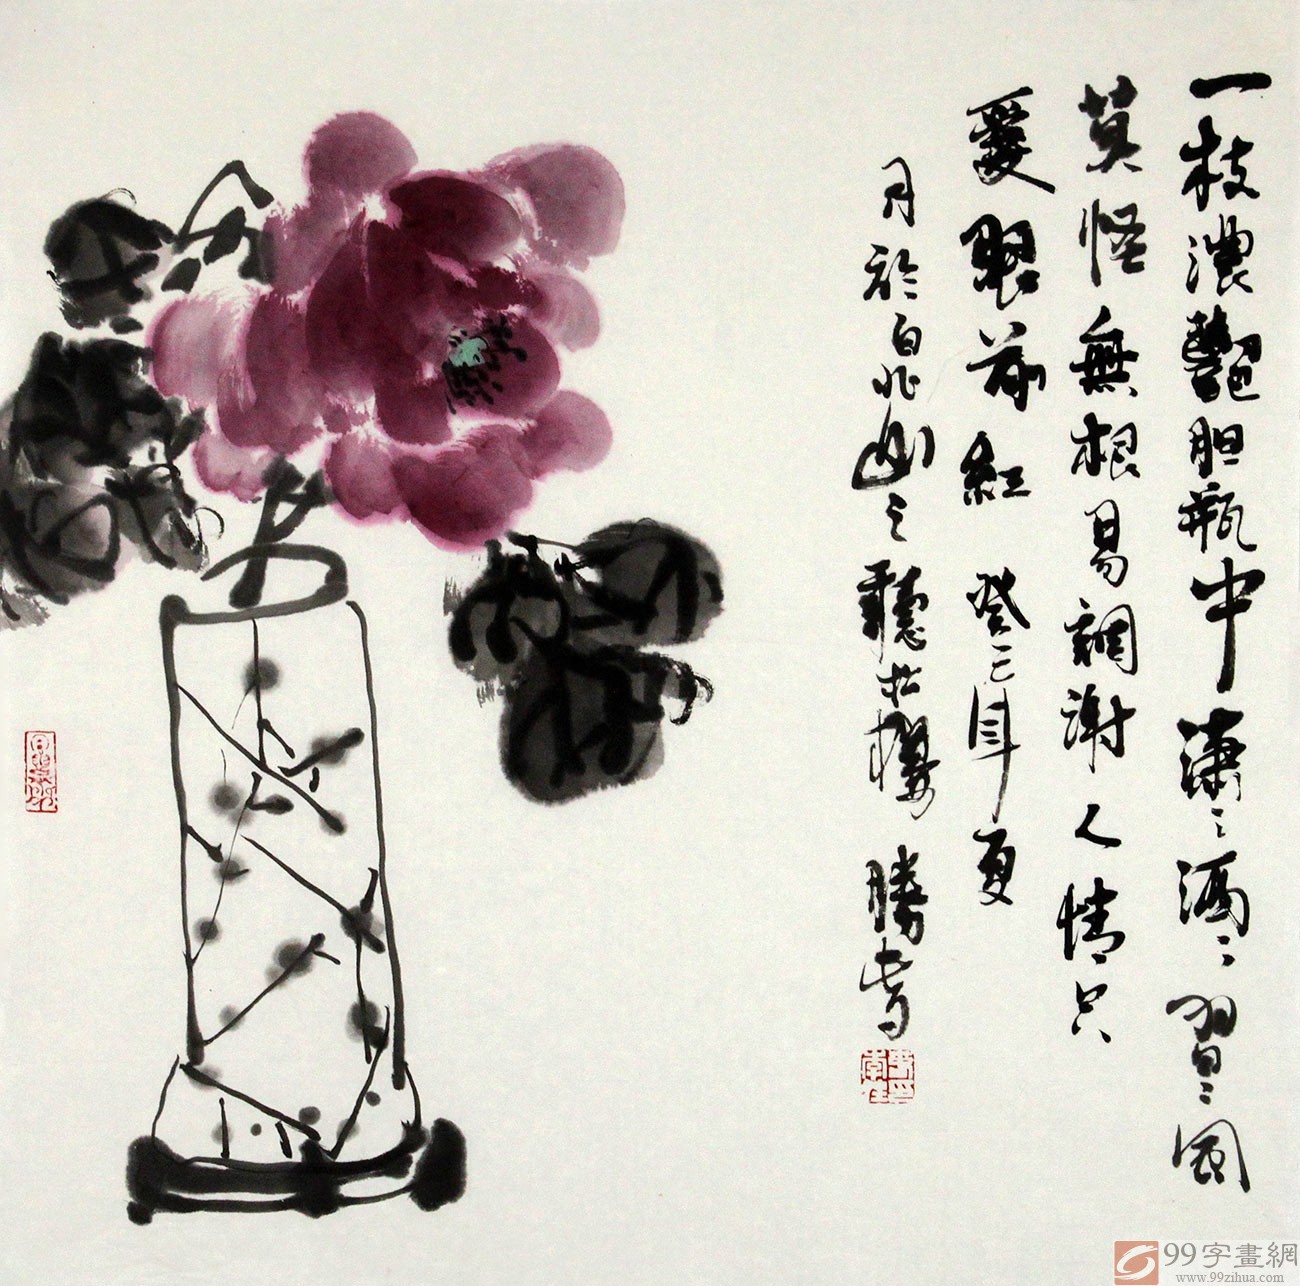 一枝濃艷胆瓶中瀟〻洒〻習〻風
莫怪無根易凋謝人情只
愛眼前紅 癸巳年夏
月於白北山之聽松樓 勝
99字畫網
www.99zihua.com